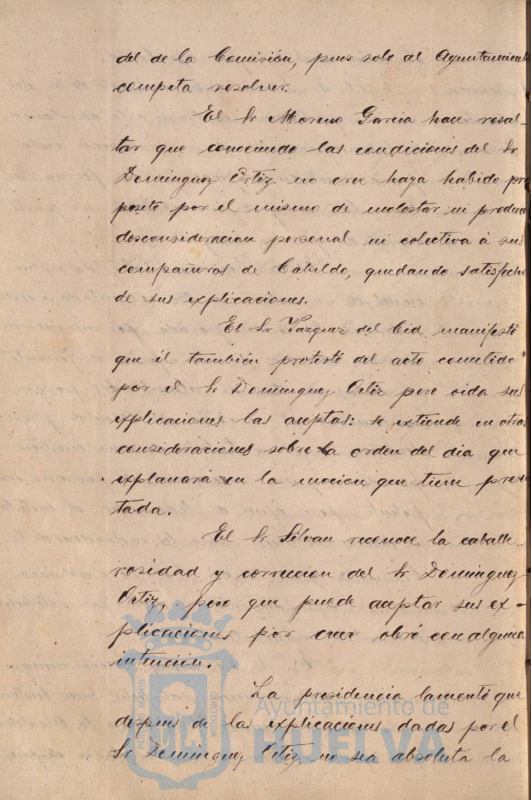 del de la Comisión, pues solo al Ayuntamient
competa resolver.
El Sr Moreno Garcia hace resal-
tar que conociendo las condiciones del Sr
Dominguez Ortiz no cree haya habido pro
posito por el mismo de molestar ni produc
desconsideracion personal ni colectiva á sus
compañeros de Cabildo, quedando satisfecho
de sus explicaciones.
El Sr Vazquez del Cid manifestó
que él tambien protestó del acto cometido
por el Sr Dominguez Ortiz pero oida sus
explicaciones las aceptas: se extiende en otras
consideraciones sobre la orden del dia que
explanará en la mocion que tiene presen
tada.
El Sr Silvan reconoce la caballe-
rosidad y correccion del Sr Dominguez
Ortiz, pero que puede aceptar sus ex-
plicaciones por creer obró con alguna
intención.
La presidencia lamentó que
despues de las explicaciones dadas por el
Sr Dominguez Ortiz no sea absoluta la
Ayuntamiento de
HUELVA